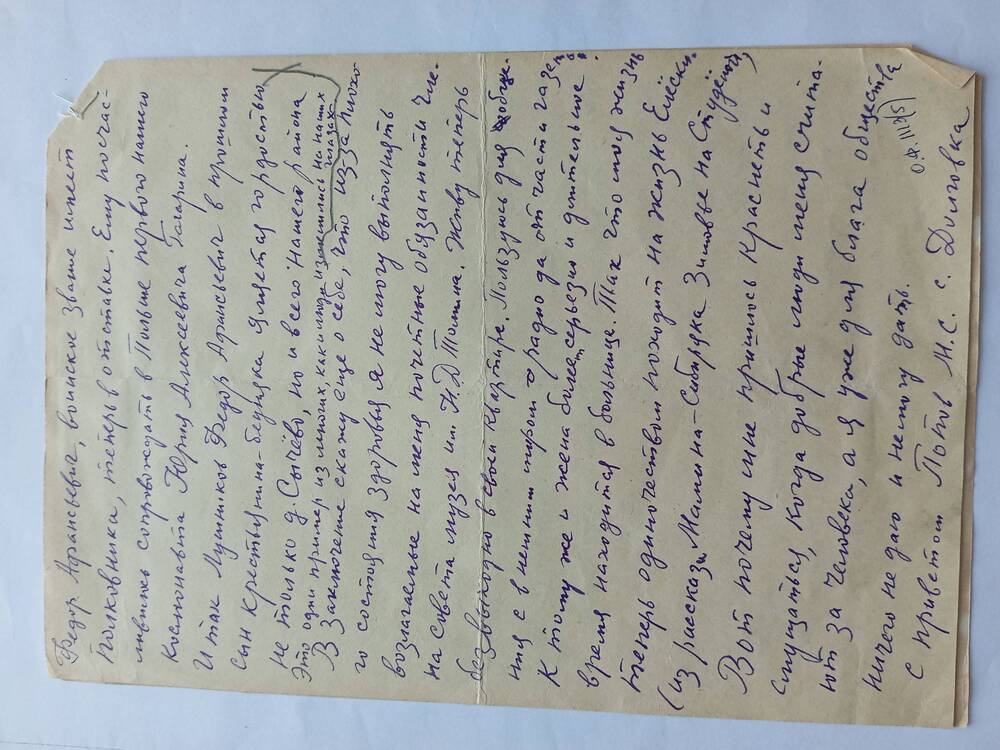 Федор Афанасьевич, воинское звание имеет
Полковника, теперь в отставке. Ему посчас-
ливилось сопровождать в Польше первого нашего
Космонавта Юрия Алексеевича Гагарина.
И так Мушников Федор Афанасьевич в прошлом
сын крестьянина-бедняка является гордостью
не только д. Сычёво, но и всего нашего района
Это один пример из многих, как люди изменились на наших глазах
В заключение скажу еще о себе, что из за плохо
го состояния здоровья я не могу выполнять
возлагаемые на меня почетные обязаности Чле-
на совета музея им. И.Д.
безвыходно в своей квартире. Пользуюсь для обще-
ния с внешним миром радио да отчасти газеты
К тому же и жена болеет серьезно и длительное
время находится в больнице. Так что моя жизнь
теперь одиночеством походит на жизнь Елески
(из рассказа Мамина-Сибиряка Зимовье на Студёной)
Вот почему мне пришлось краснеть и
смущаться, когда добрые люди меня счита-
ют за человека, а я уже для блага общества
ничего не даю и немогу дать.
с приветом Потов Н.С. с. Долговка
О.Ф. 1112/5